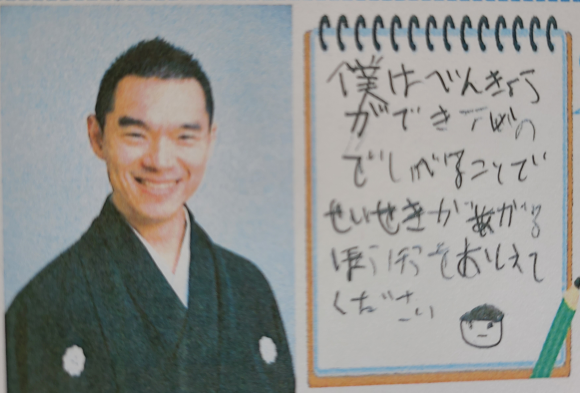 僕はべんきょう
ができないの
でしゃべることで
せいせきがあがる
ほうほうをおしえて
ください